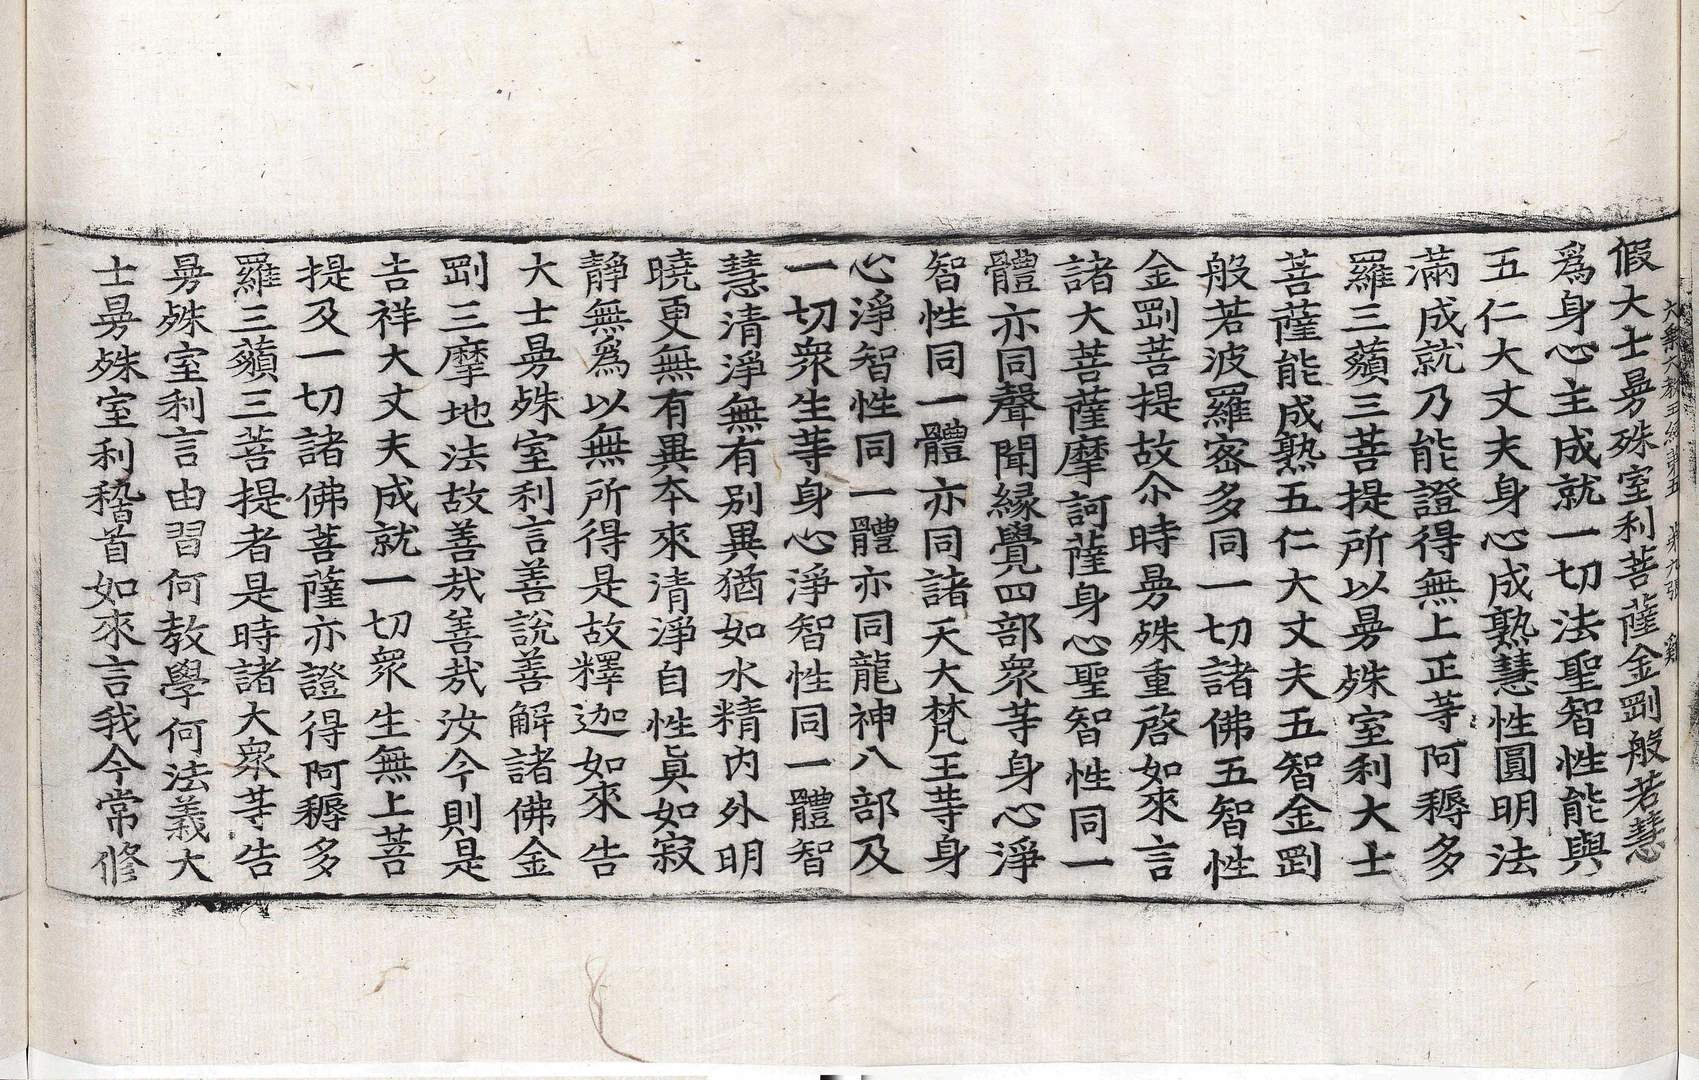 大敎大教王經第五　第九張　雞
假大士曼殊室利菩薩金剛般若慧
爲身心主成就一切法聖智性能與
五仁大丈夫身心成熟慧性圓明法
滿成就乃能證得無上正等阿耨多
羅三藐三菩提所以曼殊室利大士
菩薩能成熟五仁大丈夫五智金剛
般若波羅蜜多同一切諸佛五智性
金剛菩提故尒時曼殊重啓如來言
諸大菩薩摩訶薩身心聖智性同一
體亦同聲聞縁覺四部衆等身心淨
智性同一體亦同諸天大梵王等身
心淨智性同一體亦同龍神八部及
一切衆生等身心淨智性同一體智
慧清淨無有別異猶如水精內外明
曉更無有異本來清淨自性眞如寂
靜無爲以無所得是故釋迦如來告
大士曼殊室利言善說善解諸佛金
剛三摩地法故善哉善哉汝今則是
吉祥大丈夫成就一切衆生無上菩
提及一切諸佛菩薩亦證得阿耨多
羅三藐三菩提者是時諸大衆等告
曼殊室利言由習何教學何法義大
士曼殊室利稽首如來言我今常修